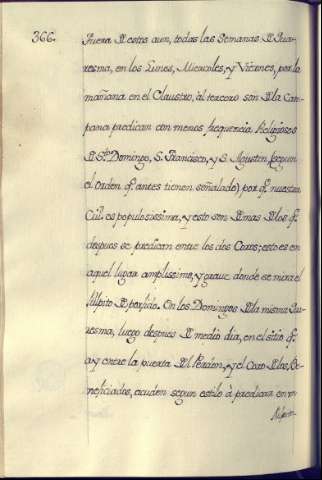 366.
Fuera de estos aun, todas las Semanas de Qua-
resma, en los Lunes, Miercoles, y Viernes, por la
mañana en el Claustro, al tercero son de la Cam-
pana predican con menos frequencia Religiosos
de Sto. Domingo, S. Francisco, y S. Agustin (segun
el orden q. antes tienen señalado) por q. nuestra
Ciud. es populosissima, y esto son demas de los q.
despues se predican entre los dos Coros; esto es en
aquel lugar amplissimo, y grave donde se mira el
Pulpito de porfido. En los Domingos de la misma Qua-
resma, luego despues de medio dia, en el sitio q.
ay entre la puerta del Perdon, y el Coro de los Be-
neficiados, acuden segun estilo à predicar en un